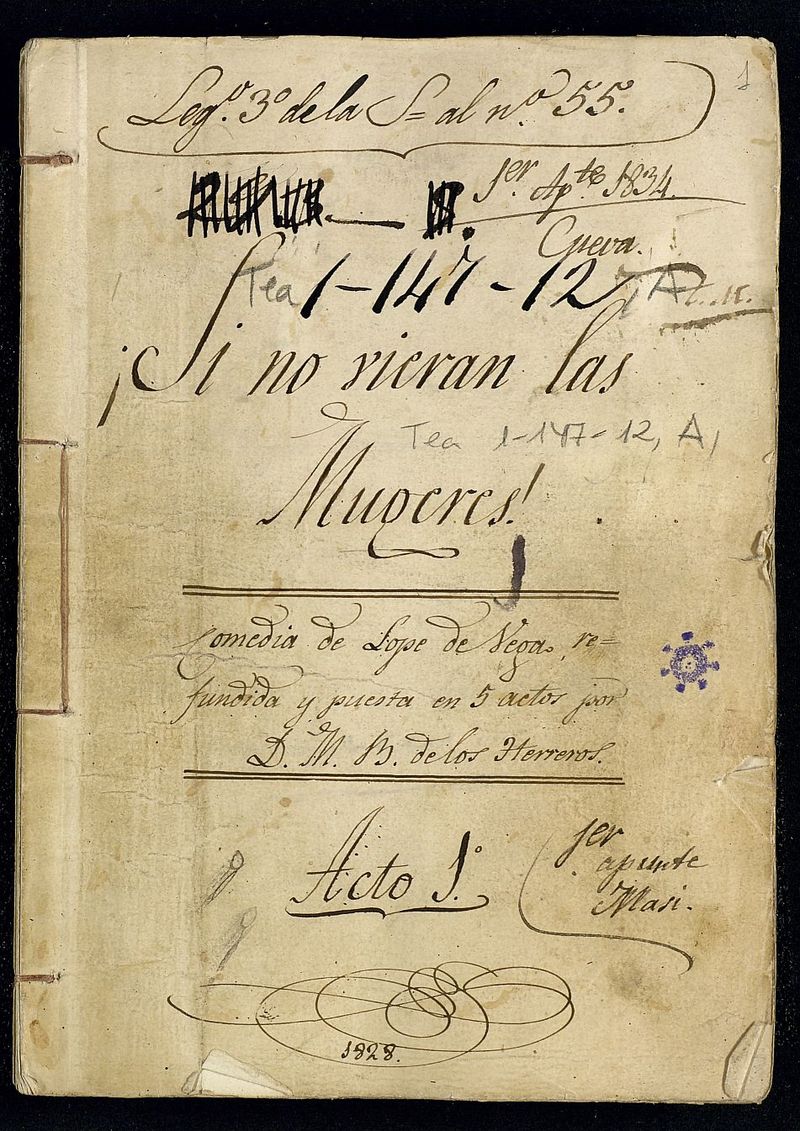 1
Leg.º 3º de la S= al n.º 55.
1er. Ap.te 1834.
Cueva.
Tea 1-147-12, A
¡Si no vieran las
Tea 1-147-12, A,
Mugeres!
Comedia de Lope de Vega, re=
fundida y puesta en 5 actos por
D. M. B. de los Herreros.
Acto 1.º
1er
apunte
Masi.
1828.